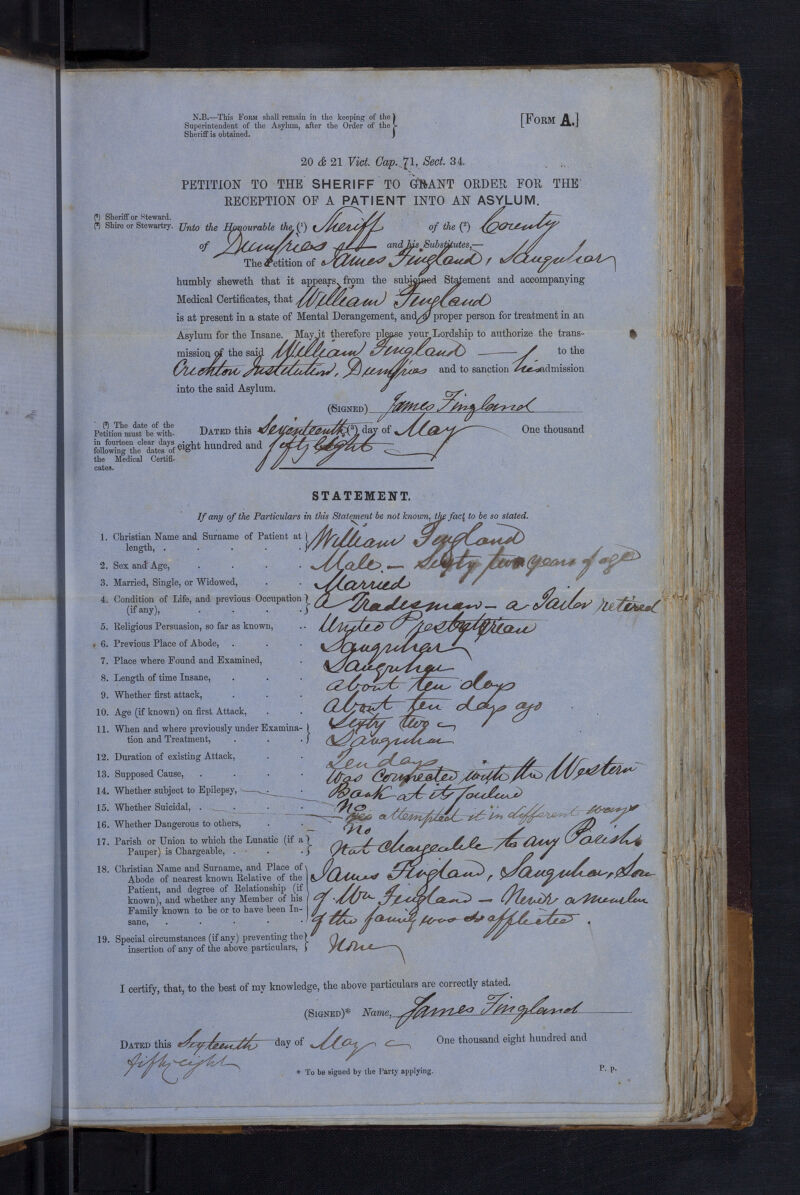 N.B.—This Form shall remain in the keeping of the
Superintendent of the Asylum, after the Order of the
Sheriff is obtained.
[Form A.]
20 & 21 Vict. Cap. 71, Sect. 34.
PETITION TO THE SHERIFF TO GRANT ORDER FOR THE
RECEPTION OF A PATIENT INTO AN ASYLUM.
(1) Sheriff or Steward.
(2) Shire or Stewartry.
Unto the Honourable the (1) Sheriff of the (2) County
of Dumfries and his Substitutes,—
The Petition of James Fingland, Sanquhar
humbly sheweth that it appears from the subjoined Statement and accompanying
Medical Certificates, that William Fingland
is at present in a state of Mental Derangement, and a proper person for treatment in an
Asylum for the Insane. May it therefore please your Lordship to authorize the trans-
mission of the said William Fingland to the
Crichton Institution, Dumfries and to sanction his admission
into the said Asylum.
(Signed) James Fingland
(3) The date of the
Petition must be with-
in fourteen clear days
following the dates of
the Medical Certifi-
cates.
Dated this Seventeenth (3) day of May One thousand
eight hundred and fifty Eight
STATEMENT.
If any of the Particulars in this Statement be not known, the fact to be so stated.
1. Christian Name and Surname of Patient at
length, . William Fingland
2. Sex and Age, Male — Sixty two years of age
3. Married, Single, or Widowed, Married
4. Condition of Life, and previous Occupation
(if any), a Tradesman — a Tailor retired
5. Religious Persuasion, so far as known, United Presbyterian
6. Previous Place of Abode, Sanquhar
7. Place where Found and Examined, Sanquhar
8. Length of time Insane, about ten days
9. Whether first attack, about ten days ago
10. Age (if known) on first Attack, Sixty two
11. When and where previously under Examina-
tion and Treatment, Sanquhar
12. Duration of existing Attack, Ten days
13. Supposed Cause, Was connected with the Western
Bank at its failure
14. Whether subject to Epilepsy, No
15. Whether Suicidal, Yes attempted it in different ways
16. Whether Dangerous to others, No
17. Parish or Union to which the Lunatic (if a
Pauper) is Chargeable, Not Chargeable to any Parish
18. Christian Name and Surname, and Place of
Abode of nearest known Relative of the
Patient, and degree of Relationship (if
known), and whether any Member of his
Family known to be or to have been In-
sane, James Fingland, Sanquhar, Son
of Wm Fingland — Never a member
of the family was so afflicted.
19. Special circumstances (if any) preventing the
insertion of any of the above particulars, None
I certify, that, to the best of my knowledge, the above particulars are correctly stated.
(Signed)* Name, James Fingland
Dated this Sixteenth day of May One thousand eight hundred and
fifty eight
* To be signed by the Party applying.
P. p.